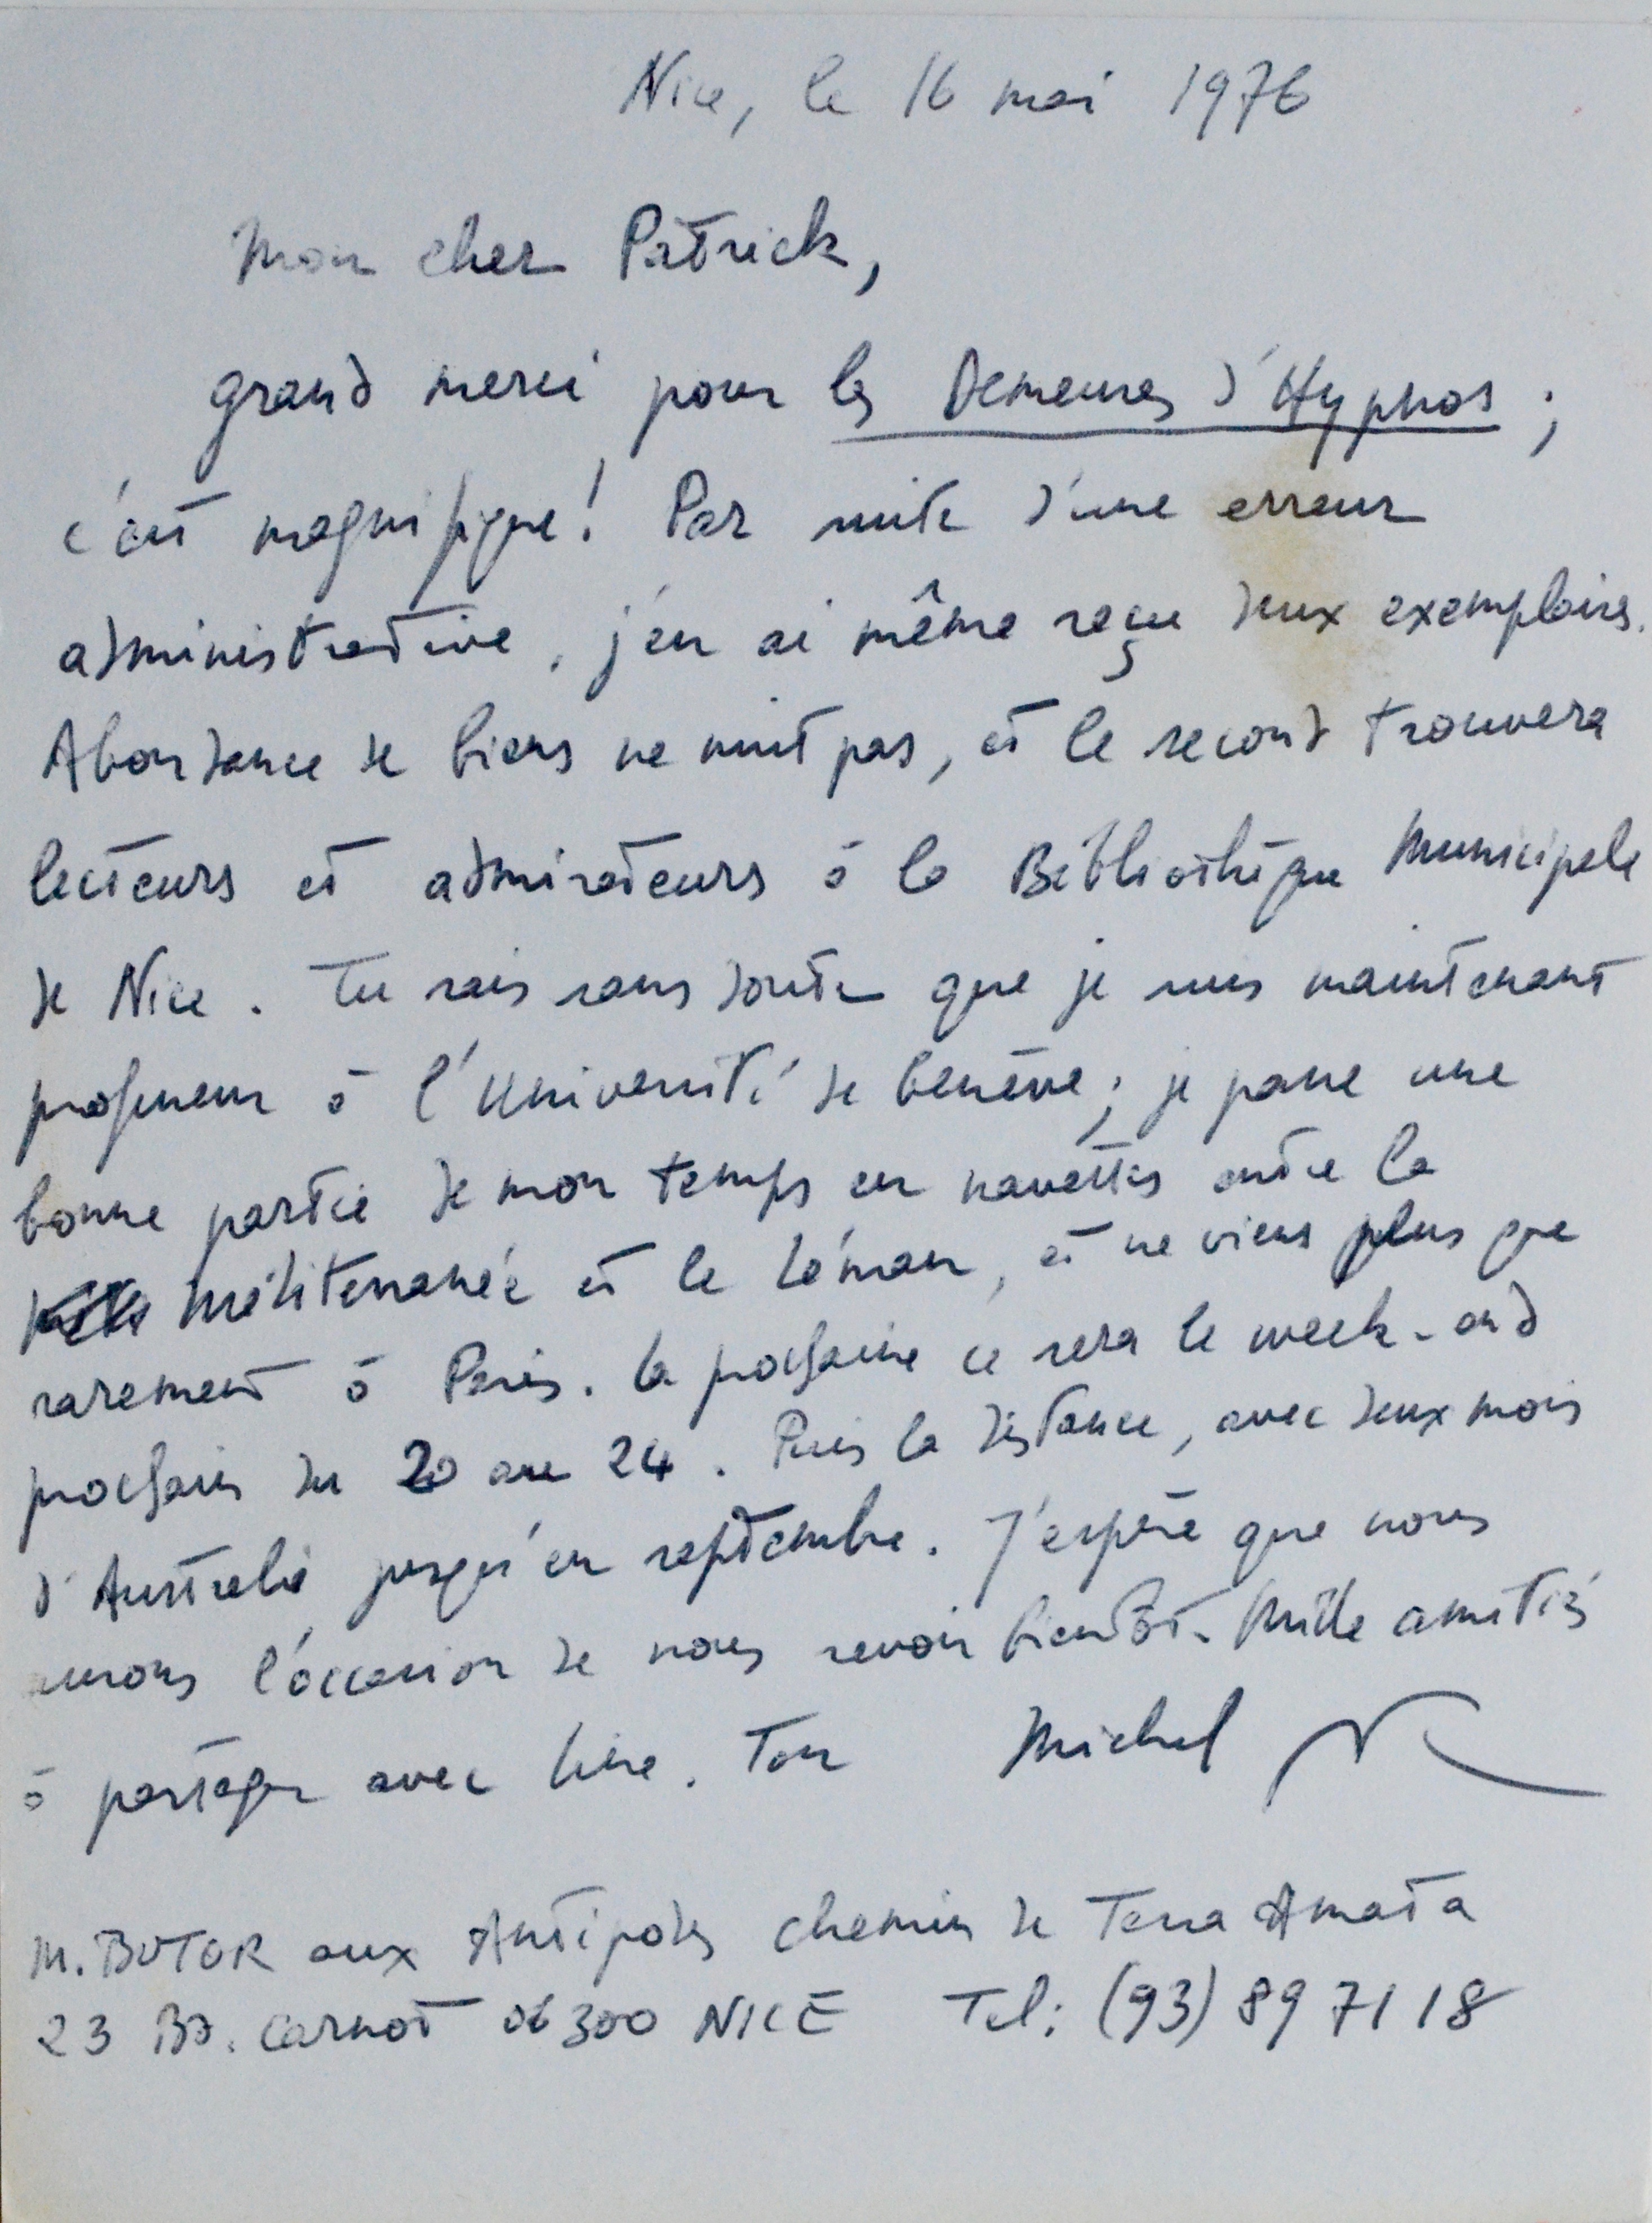 Nice, le 16 mai 1976
Mon cher Patrick,
grand merci pour les Demeures d'Hypnos ;
c'est magnifique ! Par suite d'une erreur
administrative, j'en ai même reçu deux exemplaires.
Abondance de biens ne nuit pas, et le second trouvera
lecteurs et admirateurs à la Bibliothèque Municipale
de Nice. Tu sais sans doute que je suis maintenant
professeur à l'Université de Genève ; je passe une
bonne partie de mon temps en navettes entre la
Méditerranée et le Léman, et ne viens plus que
rarement à Paris. La prochaine ce sera le week-end
prochain du 20 au 24. Puis la distance, avec deux mois
d'Australie jusqu'en septembre. J'espère que nous
aurons l'occasion de nous revoir bientôt. Mille amitiés
à partager avec. Ton Michel
M. BUTOR aux Antipodes chemin de Terra Amata
23 Bd. Carnot 06300 NICE Tel: (93) 89 71 18